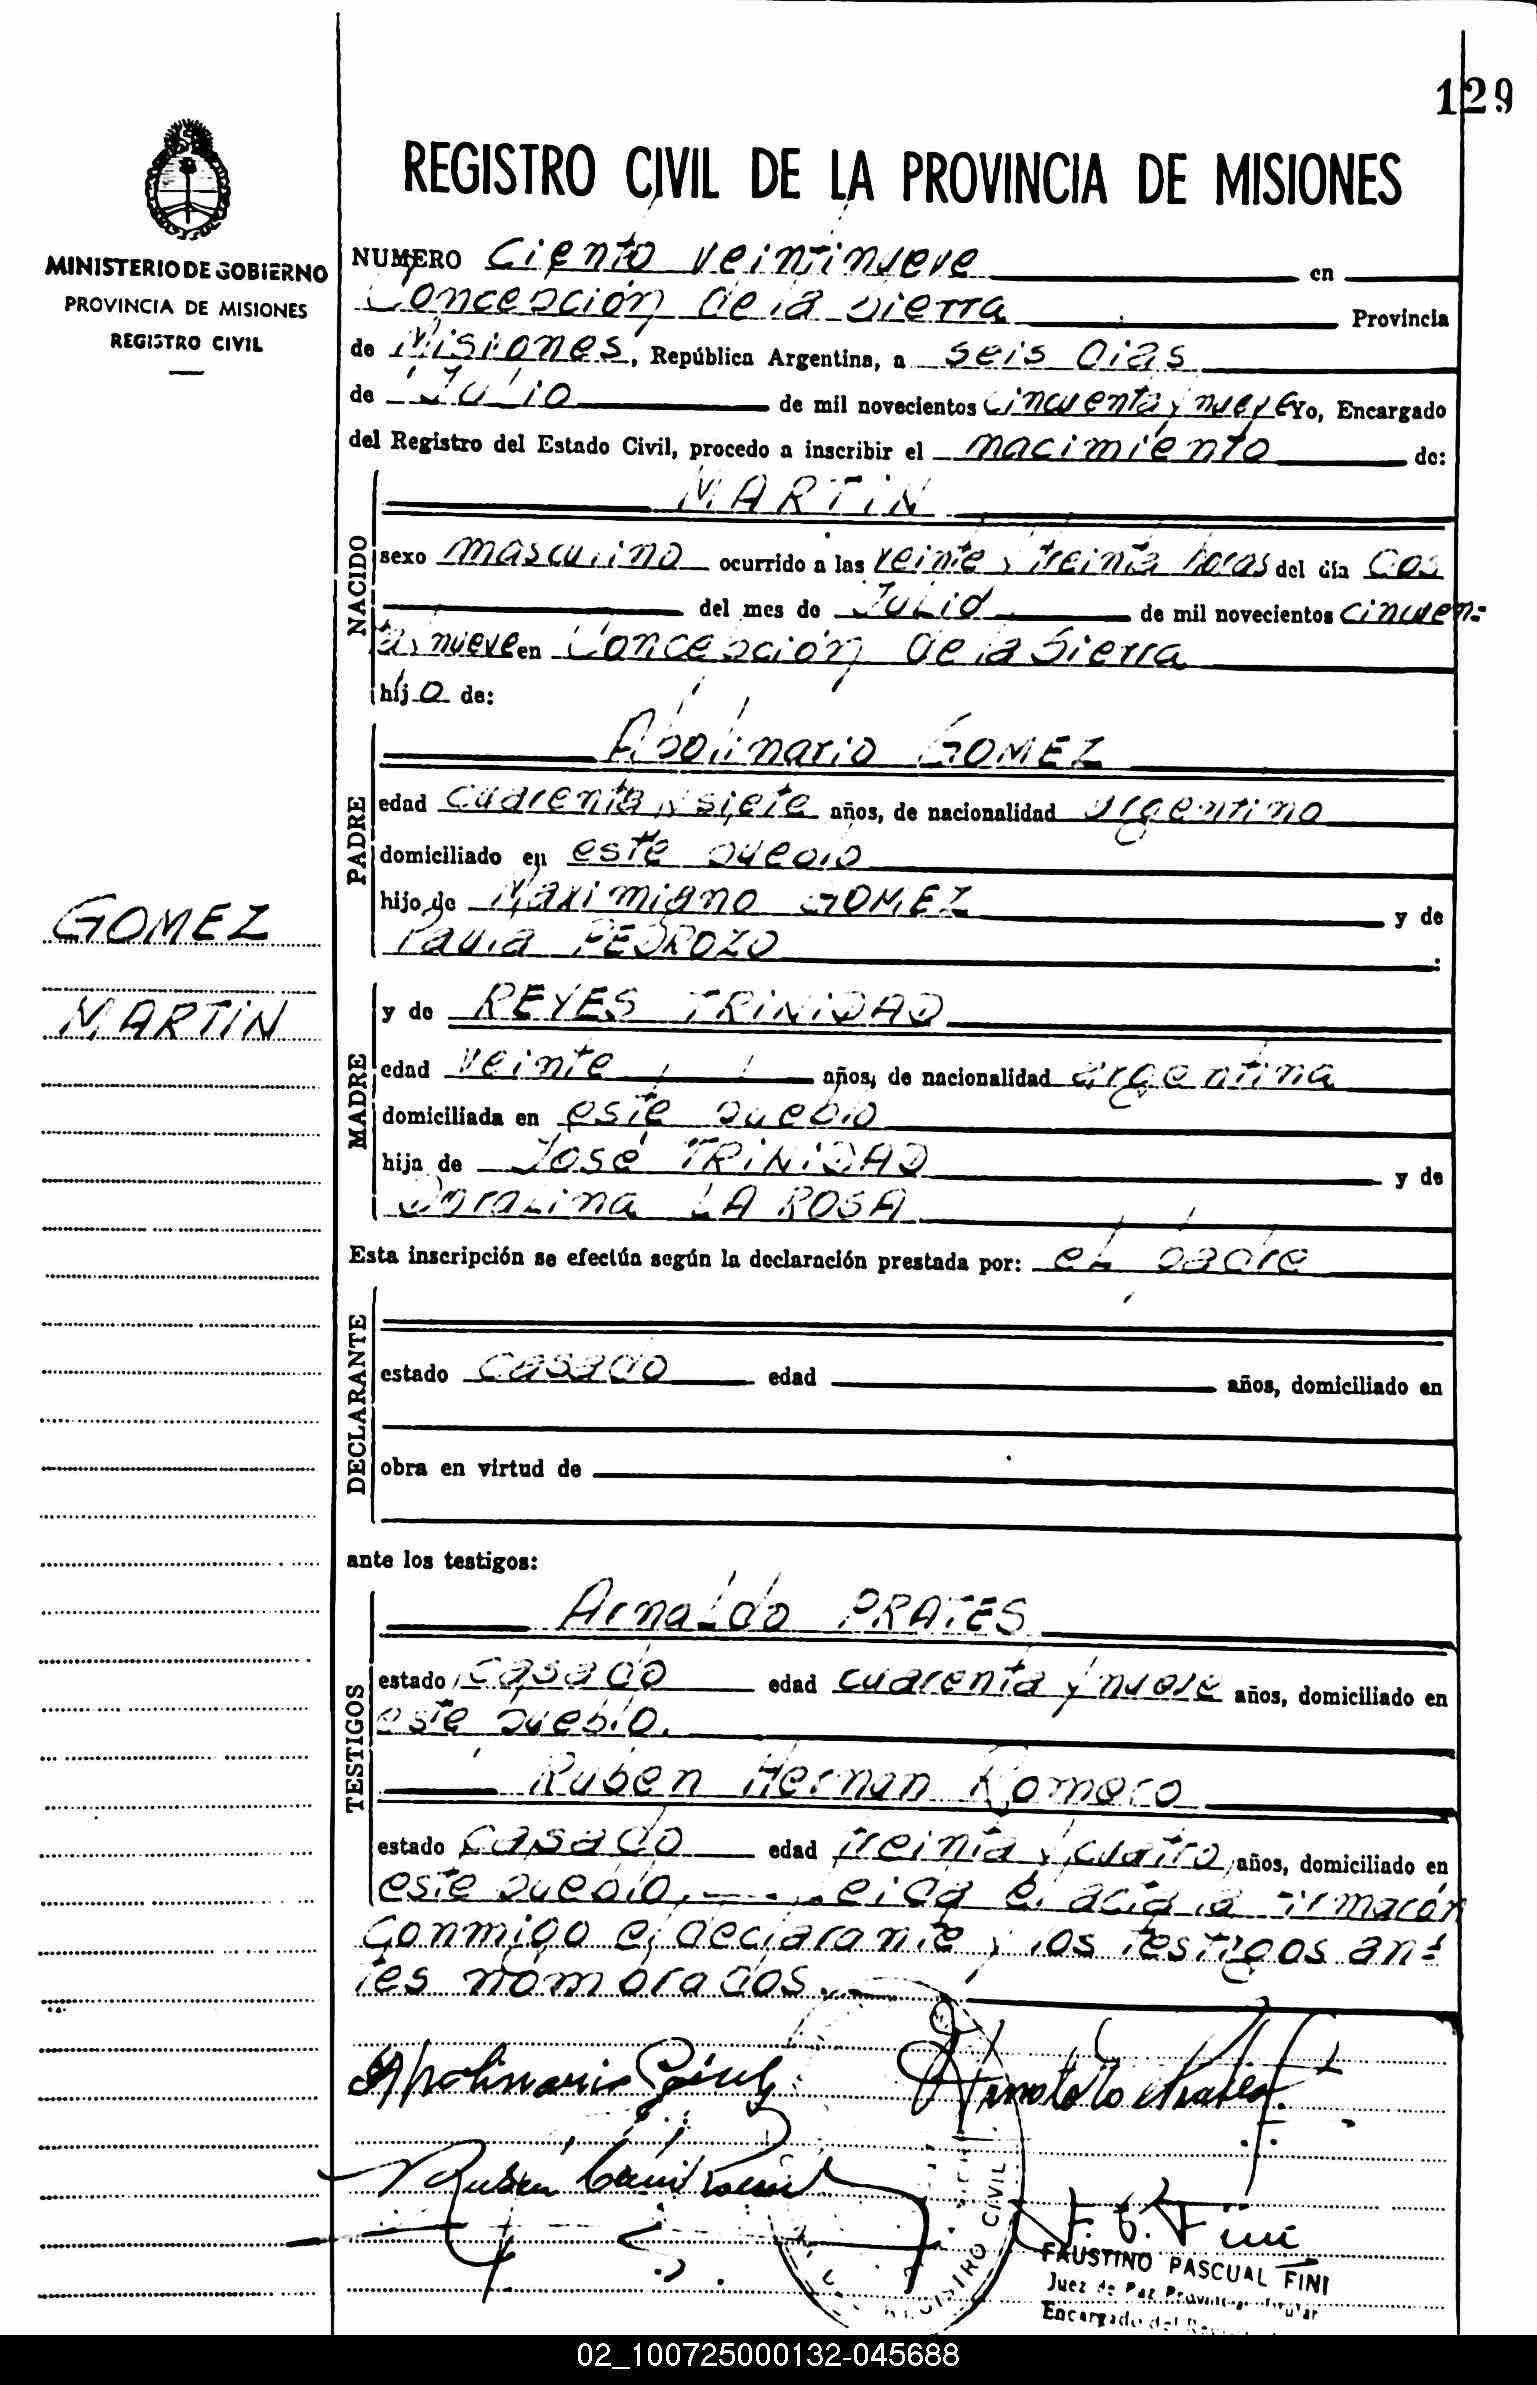 129
REGISTRO CIVIL DE LA PROVINCIA DE MISIONES
MINISTERIO DE GOBIERNO
PROVINCIA DE MISIONES
REGISTRO CIVIL
NUMERO Ciento veintinueve en
Concepción de la Sierra Provincia
de Misiones, República Argentina, a seis dias
de Julio de mil novecientos cincuenta y nueve Yo, Encargado
del Registro del Estado Civil, procedo a inscribir el nacimiento de:
MARTIN
NACIDO
sexo masculino ocurrido a las veinte y treinta horas del día dos
del mes de Julio de mil novecientos cincuen=
ta y nueve en Concepción de la Sierra
hijo de:
Apolinario GOMEZ
PADRE
edad cuarenta y siete años, de nacionalidad argentino
domiciliado en este pueblo
hijo de Maximiano GOMEZ y de
Paula PEDROZO
GOMEZ
MARTIN
MADRE
y de REYES TRINIDAD
edad veinte años, de nacionalidad argentina
domiciliada en este pueblo
hija de José TRINIDAD y de
Doralina LA ROSA
Esta inscripción se efectúa según la declaración prestada por: el padre
DECLARANTE
estado casado edad años, domiciliado en
obra en virtud de
ante los testigos:
TESTIGOS
Arnaldo PRATES
estado casado edad cuarenta y nueve años, domiciliado en
este pueblo.
Ruben Hernan Romero
estado casado edad treinta y cuatro años, domiciliado en
este pueblo, leida el acta la firmarón
conmigo el declarante y los testigos an=
tes nombrados.
Apolinario Gómez
REGISTRO CIVIL
F. P. Fini
FAUSTINO PASCUAL FINI
Juez de Paz
Encargado del
02_100725000132-045688